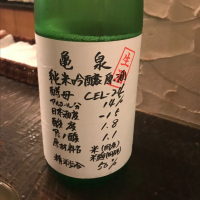 亀泉
生
純米吟醸原酒
酵母 CEL-24
アルコール分 14%
日本酒度 -15
酸度 1.8
アミノ酸 1.1
原材料名 米(国産)
米麹(国産米)
精米歩合 50%